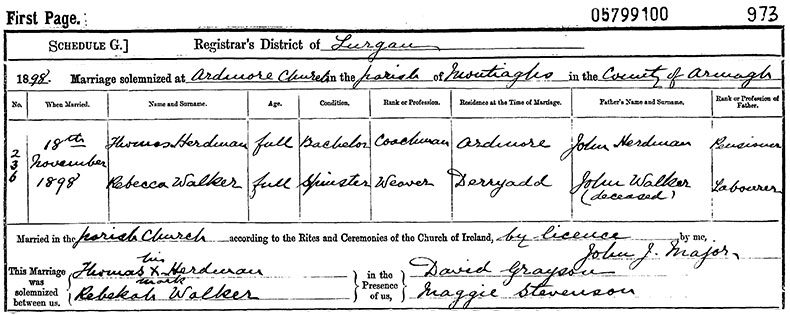 First Page. 05799100 973
SCHEDULE G.] Registrar's District of Lurgan
1898. Marriage solemnized at Ardmore Church in the parish of Montiaghs in the County of Armagh
No. When Married. Name and Surname. Age. Condition. Rank or Profession. Residence at the Time of Marriage. Father's Name and Surname. Rank or Profession of Father.
236 18th November 1898 Thomas Herdman full Bachelor Coachman Ardmore John Herdman Pensioner
Rebecca Walker full Spinster Weaver Derryadd John Walker (deceased) Labourer
Married in the parish Church according to the Rites and Ceremonies of the Church of Ireland, by licence by me,
John J. Major
This Marriage was solemnized between us, Thomas his X mark Herdman in the Presence of us, David Grayson
Rebekah Walker Maggie Stevenson